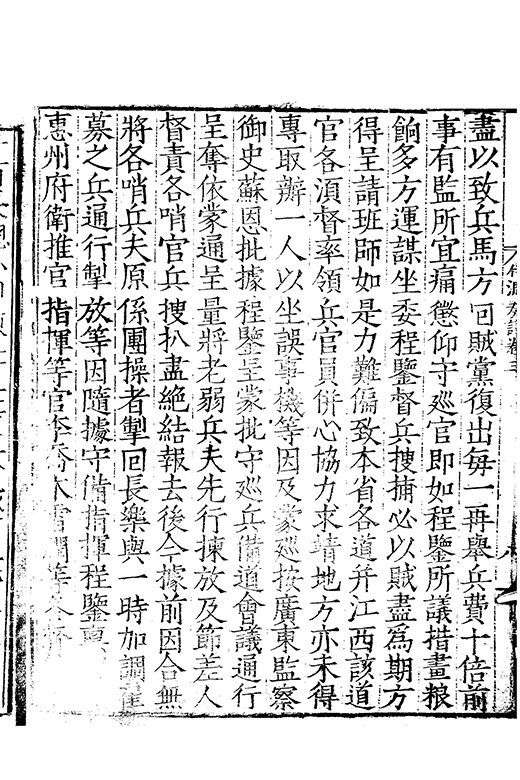 盡以致兵馬方回賊黨復出毎一再舉兵費十倍前
事有監所宜痛懲仰守廵官即如程鑒所議措畫粮
餉多方運謀坐委程鑒督兵搜捕必以賊盡爲期方
得呈請班師如是力難偏致本省各道并江西該道
官各湏督率領兵官員併心協力求靖地方亦未得
專取辦一人以坐誤事機等因及蒙廵按廣東監察
御史蘇恩批據程鑒呈蒙批守廵兵備道會議通行
呈奪依蒙通呈量將老弱兵夫先行揀放及節差人
督責各哨官兵搜扒盡絶結報去後今據前因合無
將各哨兵夫原係團操者掣回長樂與一時加調
募之兵通行掣放等因隨據守備指揮程鑒
惠州府衛推官指揮等官李